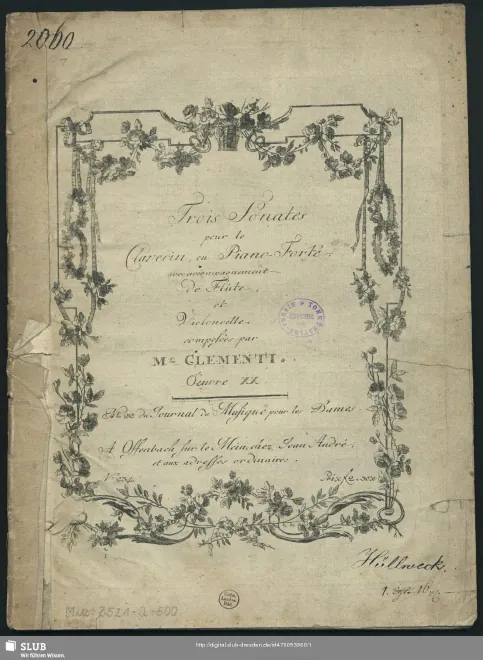 2060
Trois Sonates
pour le
Clavecin, ou Piano-Forté
avec accompagnement
De Flûte,
et
Violoncelle.
composées par
M. CLEMENTI.
Oeuvre XX.
du Journal de Musique pour les Dames
A Offenbach sur le Mein, chez Jean André.
et aux adresses ordinaires.
Prix f 2.
Hüllweck.
SLUB
Wir führen Wissen.